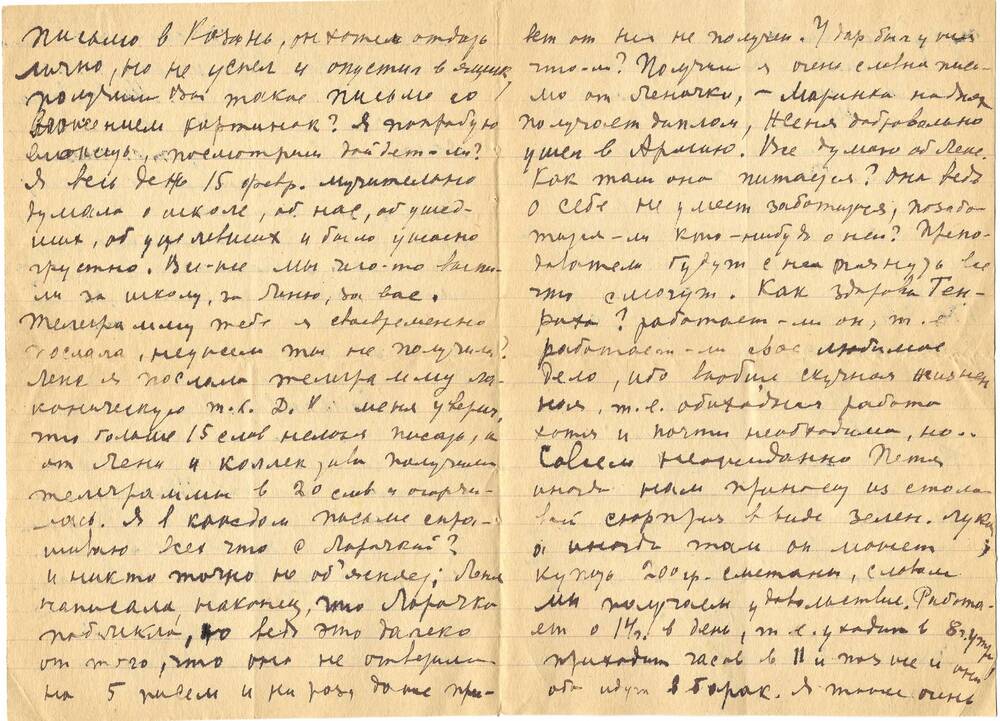 письмо в Казань, он хотел отдать
лично, но не успел и опустил в ящик,
получили Вы такое письмо со
вложением картинок? Я попробую
посмотрим дойдет-ли?
Я весь день 15 февр. мучительно
думала о школе, об нас, об ушед-
ших, об уцелевших и было ужасно
грустно. Все-же мы что-то
ли за школу, за Лёню, за вас.
Телеграмму тебе я своевременно
послала, неужели ты не получила?
Лене я послала телеграмму ла-
коническую т.к. Д.К. меня уверил,
что больше 15 слов нельзя писать, а
от Лены и коллектива получили
телеграммы в 20 слов и огорчи-
лась. Я в каждом письме спра-
шиваю всех что с Лорочкой?
и никто точно не об'ясняет; Лена
написала, наконец, что Лорочка
поблекла, но ведь это далеко
от того, что она не ответила
на 5 писем и ни разу даже при-
вет от нея не получили. Удар был у нея
что-ли? Получила я очень славное пись-
мо от Леночки, – Маринка на днях
получает диплом, Женя добровольно
ушел в Армию. Все думаю об Лене.
Как там она питается? она ведь
о себе не умеет заботиться, позабо-
тится-ли кто-нибудь о ней? Препо-
даватели будут с нея тянуть все
что смогут. Как здоровье Ген-
риха? работает-ли он, т.е.
работает-ли свое любимое
дело, ибо вообще скучная жизнен-
ная, т.е. обиходная работа
хотя и почти необходима, но..
Совсем неожиданно Петя
иногда нам приносит из столо-
вой сюрприз в виде зелен. лука,
а иногда там он может
купить 200 гр. сметаны, словом
мы получаем удовольствие. Работа-
ет о 14 ч. в день, т.е. уходит в 8 ч. утра,
приходит часов в 11 и позже и они
оба идут в барак. Я тоже очень